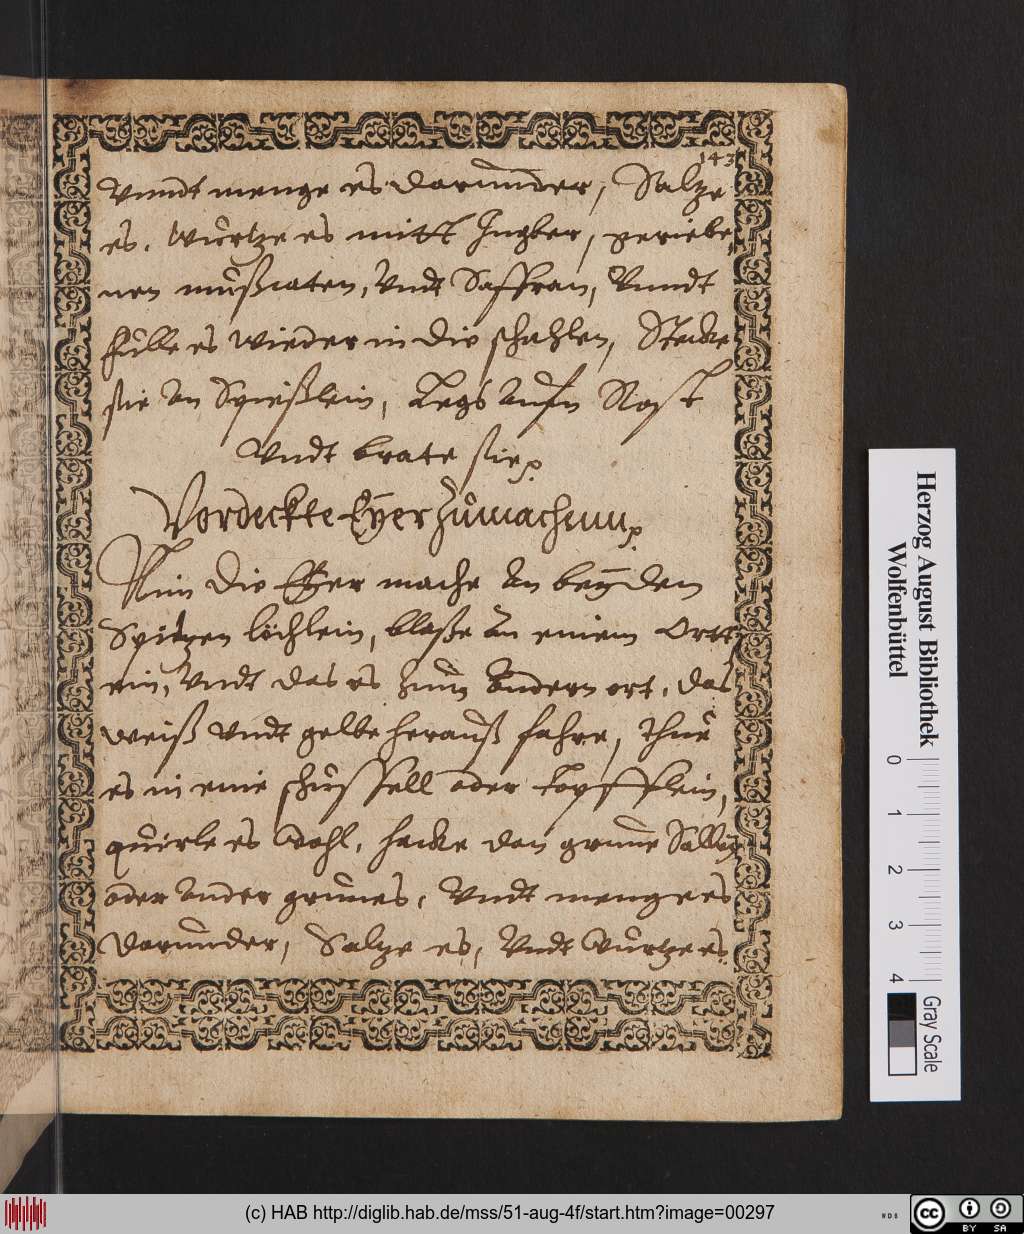 143
Vnndt menge es darunder, Saltze
es, würtze es mitt Ingber, geriebe,
nen mußcaten, Vndt Saffran, Vnndt
fülle es wieder in die schahlen, Stecke
sie an Spießlein, Legs aufn Rost
Vndt brate sie
Vordeckte Eÿer zůmachenn
Nim die Eÿer mache an beÿden
Spitzen löchlein, blaße an einem Ortt
ein, Vndt das es zum andern ort, das
weiß Vndt gelbe herauß fahre, Thue
es in eine schüssell oder töpfflein,
quirle es wohl, hacke den grune Salbey
oder ander grunes, Vndt menge es
darunder, Saltze es, Vndt würtze es
Herzog August Bibliothek
Wolfenbüttel
0 1 2 3 4
Gray Scale
(c) HAB http://diglib.hab.de/mss/51-aug-4f/start.htm?image=00297
WDB
cc BY SA